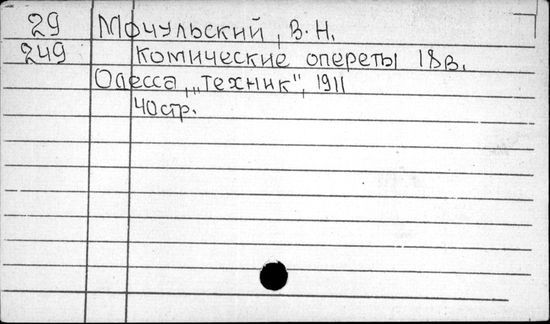 29 Мочульский, В.Н.
249 Комические опереты 18в.
Одесса, „Техник", 1911
40стр.